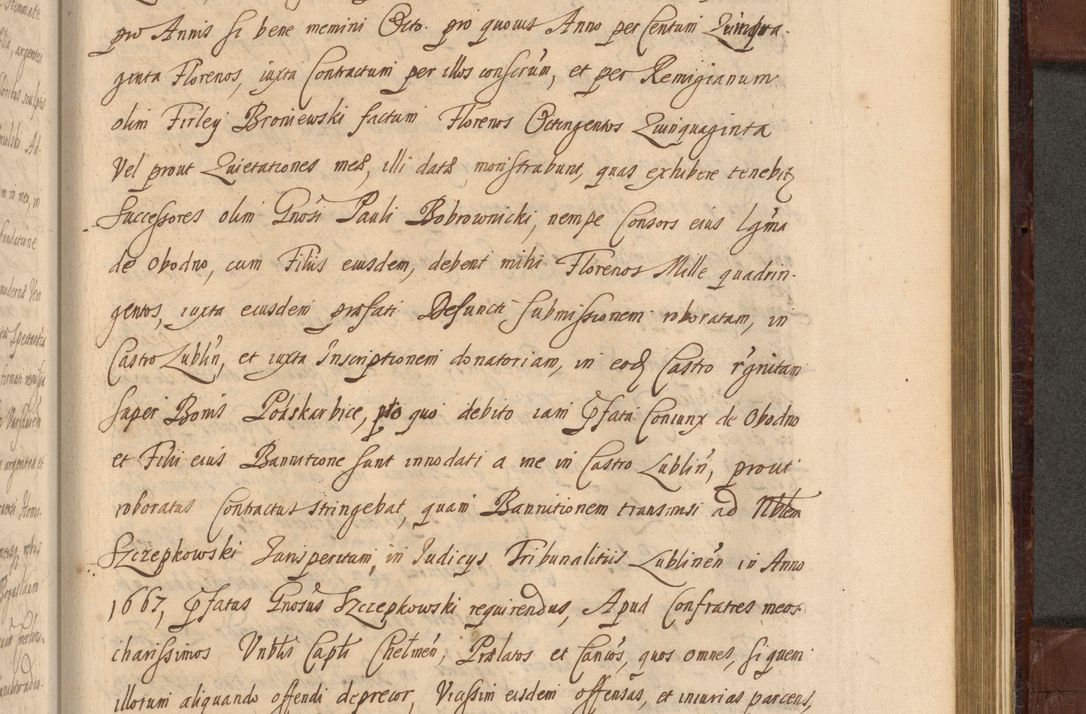 pro Annis si bene memini Octo. pro quovis Anno per Centum Quinqua-
ginta Florenos, iuxta Contractum per illos conscrũm, et per Remigianum
olim Firley Broniewski factum Florenos Octingentos Quinquaginta
Vel prout Quietationes meæ, illi datæ monstrabunt, quas exhibere tenebit
Successores olim Gnosi Pauli Bobrownicki, nempe Consors eius Lgma
de Obodno, cum Filiis eiusdem, debent mihi Florenos Mille quadrin-
gentos, iuxta eiusdem præfati Defuncti submissionem roboratam, in
Castro Lublin, et iuxta Inscriptionem donatoriam, in eod Castro rgnitam
super Bonis Podskarbice, pro quo debito iam Pfata Coniunx de Obodno
et Filii eius Bannitione sunt innodati a me in Castro Lublin, prout
roboratus Contractus stringebat, quam Bannitionem transmisi ad Nblem
Szczepkowski Jurisperitum, in Judicys Tribunalitiis Lublinen in Anno
1667, Pfatus Gnosus Szczepkowski requirendus, Apud Confratres meos
charissimos Vnblis Capli Chelmen, Prælatos et Cancos, quos omnes, si quem
illorum aliquando offendi deprecor, Vicissim eisdem offensas, et iniurias parcens,